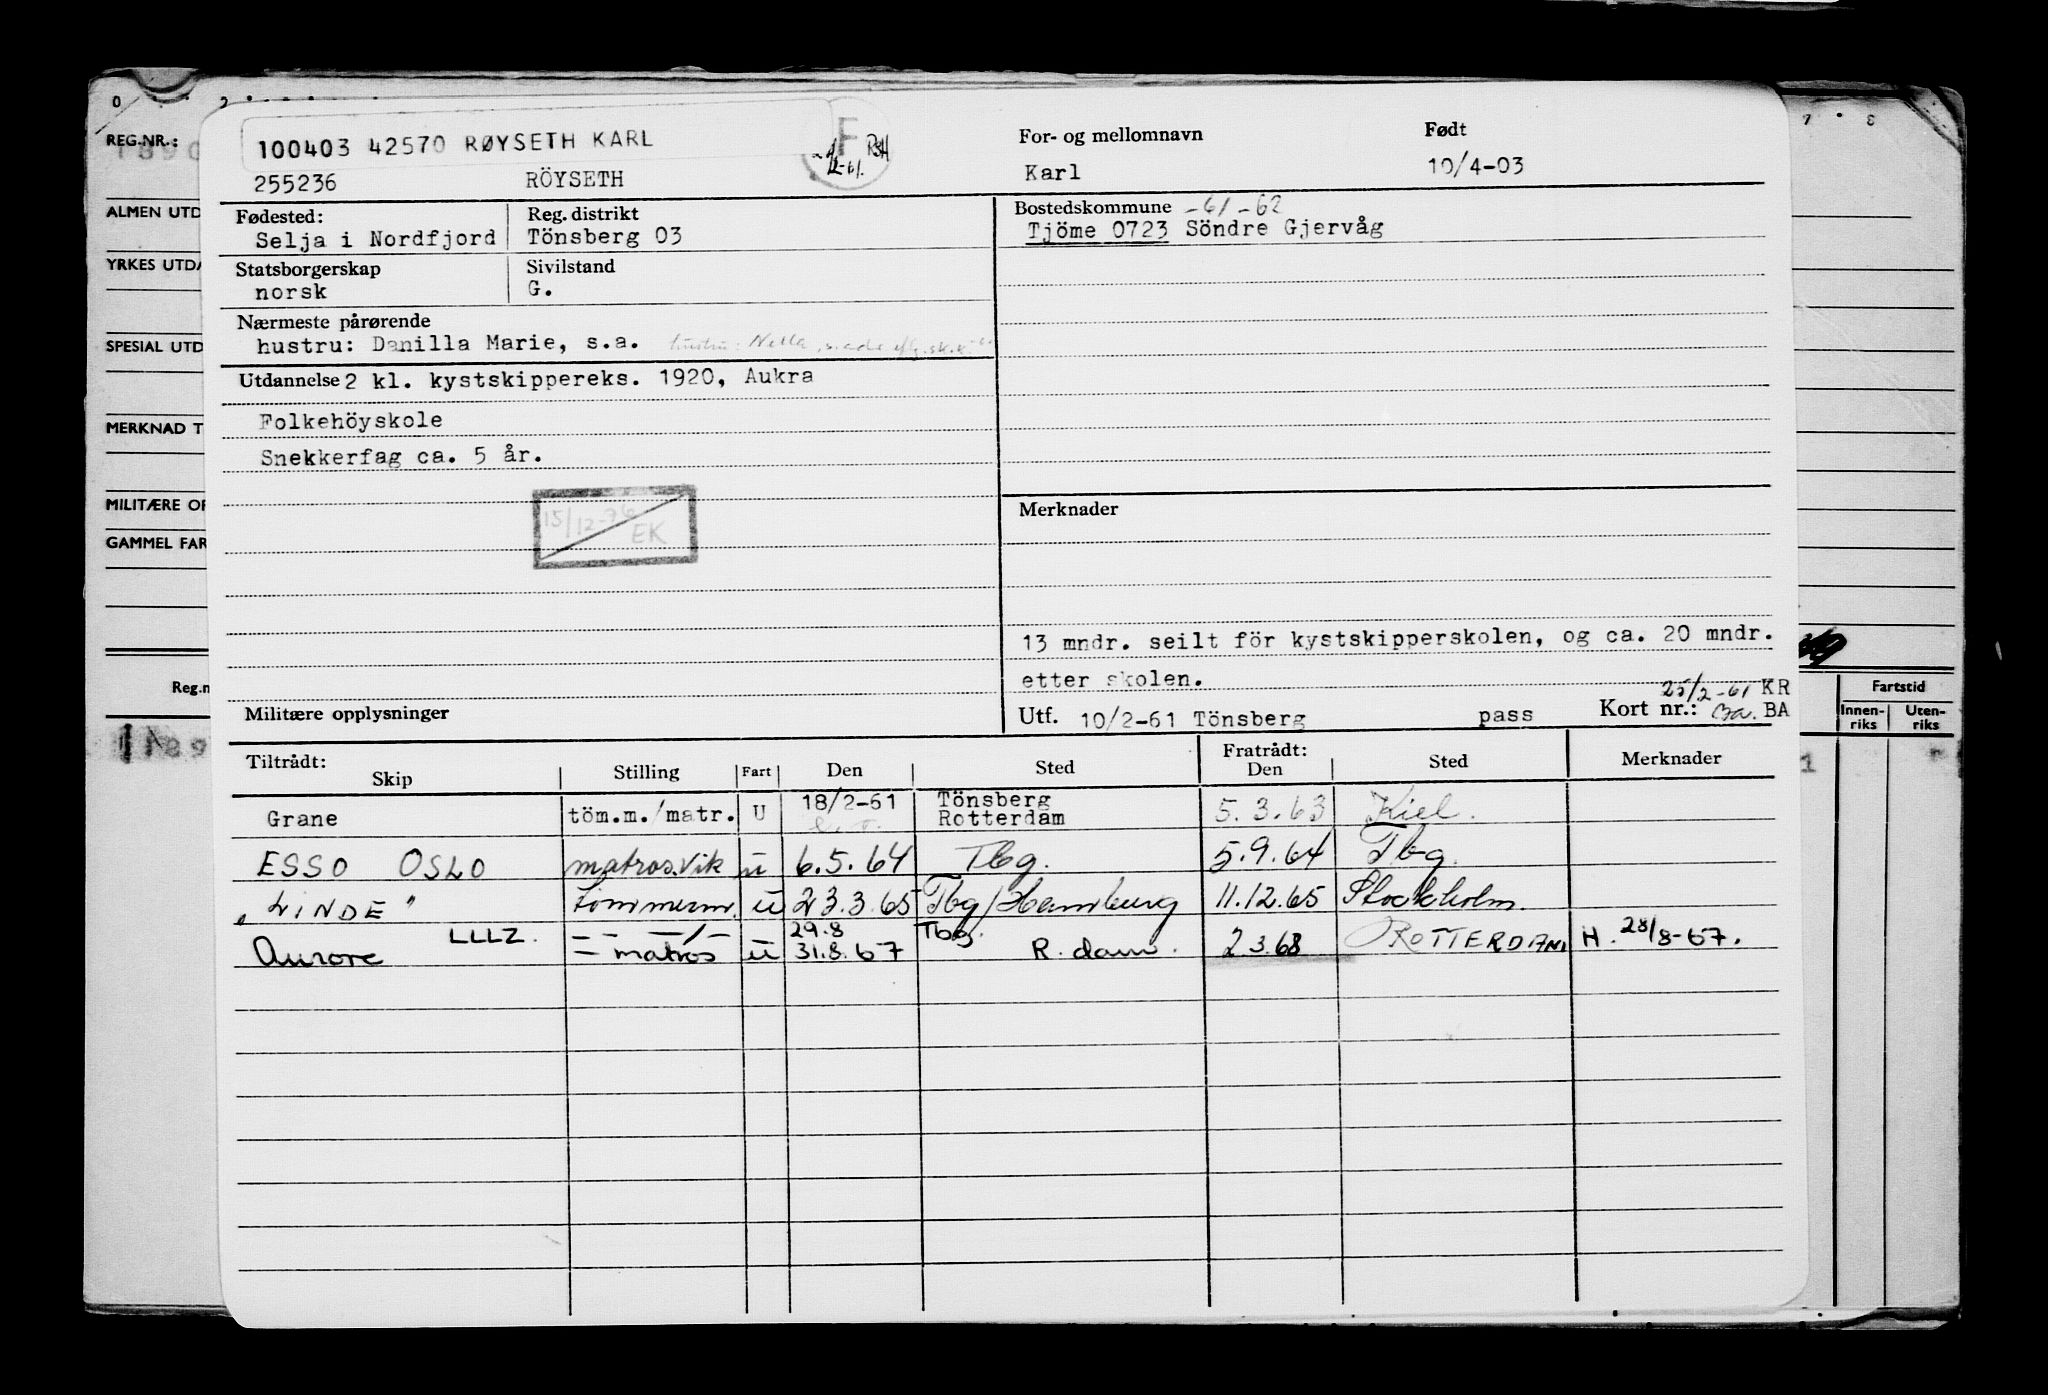 REG.NR.:
ALMEN UTD
YRKES UTDA
SPESIAL UTD
MERKNAD T
MILITÆRE OP
GAMMEL FAR
Reg.n
100403 42570 RØYSETH KARL
255236 RÖYSETH
F
For- og mellomnavn
Karl
Født
10/4-03
Fødested:
Selja i Nordfjord
Reg. distrikt
Tönsberg 03
Bostedskommune -61-62
Tjöme 0723 Söndre Gjervåg
Statsborgerskap
norsk
Sivilstand
G.
Nærmeste pårørende
hustru: Danilla Marie, s.a.
Utdannelse 2 kl. kystskippereks. 1920, Aukra
Folkehöyskole
Snekkerfag ca. 5 år.
15/12-76
EK
Merknader
13 mndr. seilt för kystskipperskolen, og ca. 20 mndr.
etter skolen.
Militære opplysninger
Utf. 10/2-61 Tönsberg pass
25/2-61 KR
Kort nr.: BA
Fartstid
Innen-riks Uten-riks
Tiltrådt:
Skip Stilling Fart Den Sted
Fratrådt:
Den Sted Merknader
Grane töm.m./matr. U 18/2-61 Tönsberg
Rotterdam 5.3.63 Kiel.
ESSO OSLO matros.vik u 6.5.64 Tbg. 5.9.64 Tbg.
"LINDE" tömmerm. u 23.3.65 Tbg/Hamburg 11.12.65 Stockholm.
LLLZ. — — —/— 29.8 Tbg.
Aurore = matros u 31.8.67 R.dam. 2.3.68 ROTTERDAM H. 28/8-67.